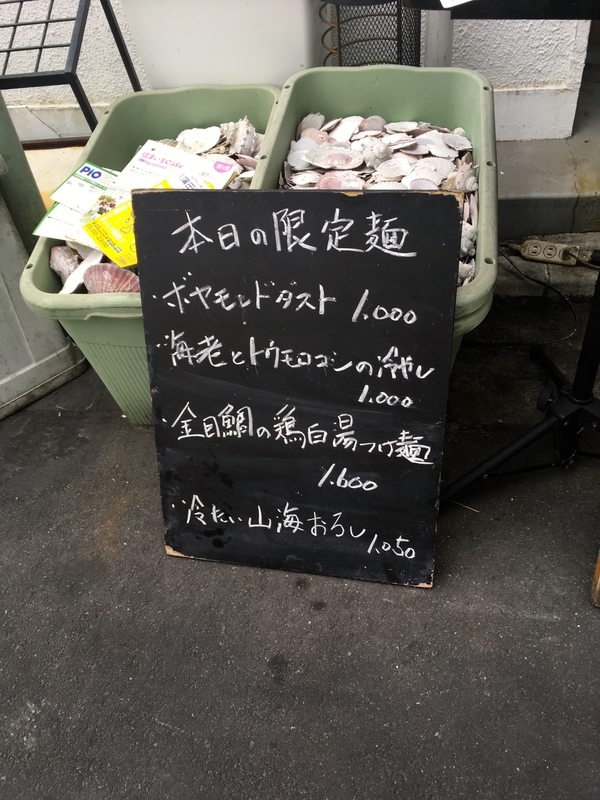 PiO
本日の限定麺
・ボヤモンドダスト 1.000
・海老とトウモロコシの冷やし
1.000
・金目鯛の鶏白湯つけ麺
1.600
・冷たい山海おろし 1.050